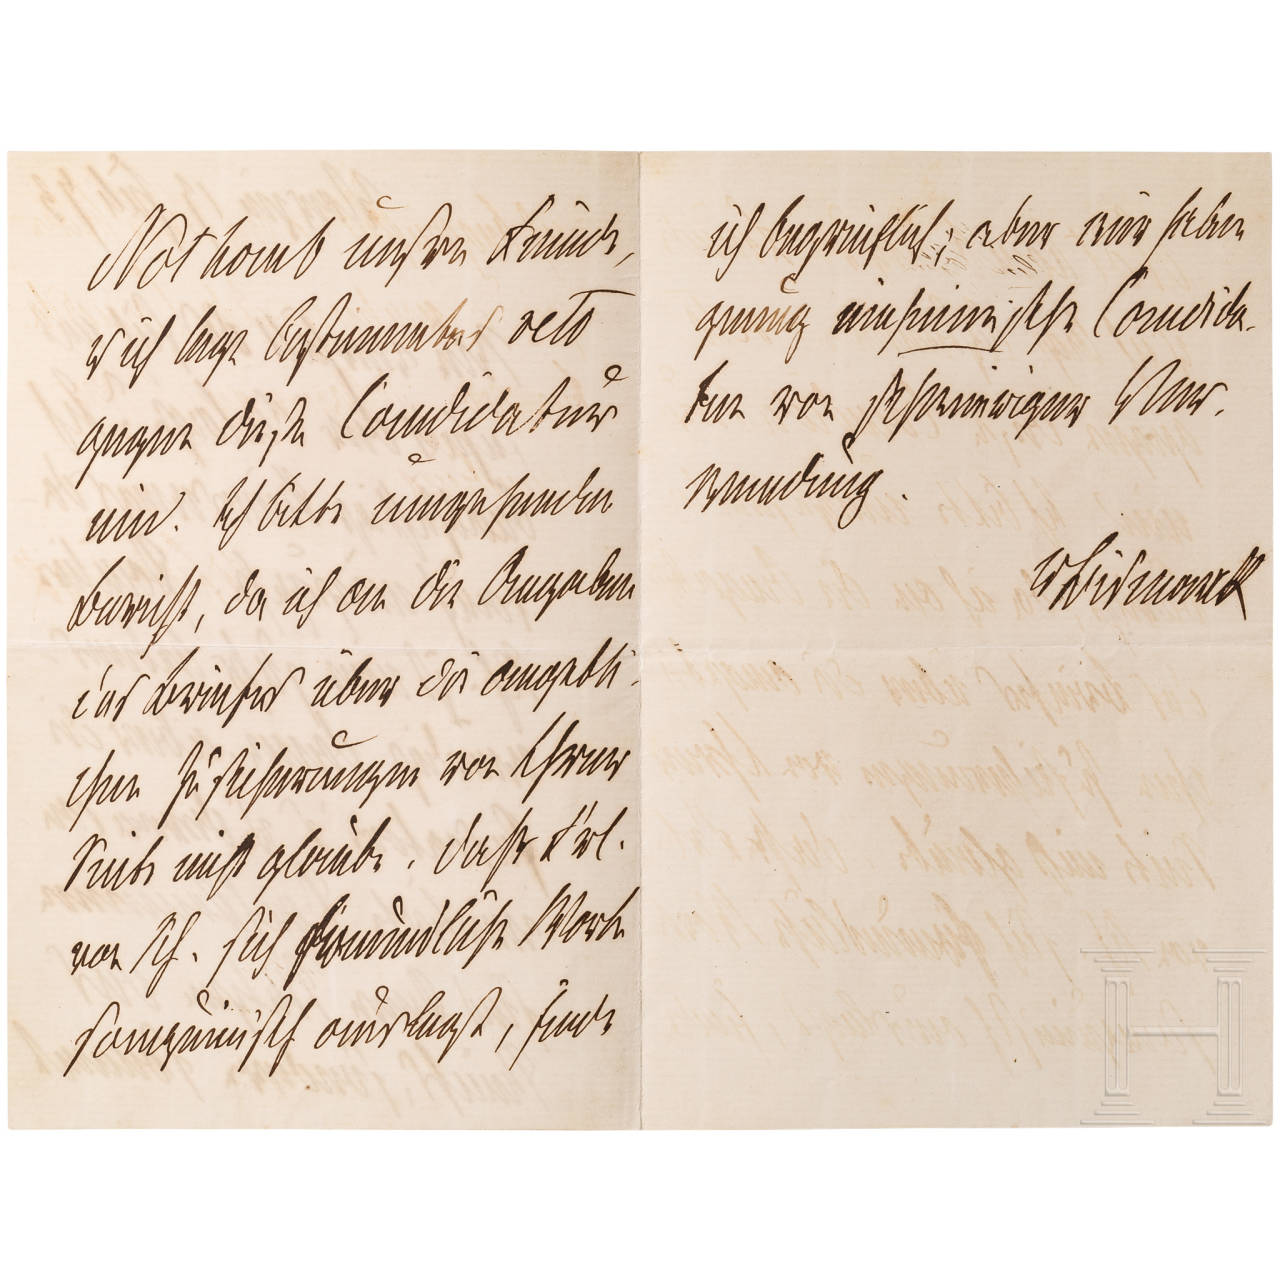 Nothomb unsre Freunde,
u ich lege bestimmtes veto
gegen diese Candidatur
ein. Ich bitte umgehenden
Bericht, da ich an die Angaben
des Briefes über die angebli-
chen Zusicherungen von Ihrer
Seite nicht glaube. daß Frl.
von Sch. sich freundliche Worte
sanguinisch auslegt, finde
ich begreiflich, aber wir haben
genug einheimische Candida-
ten von schwieriger Ver-
wendung.
vBismarck